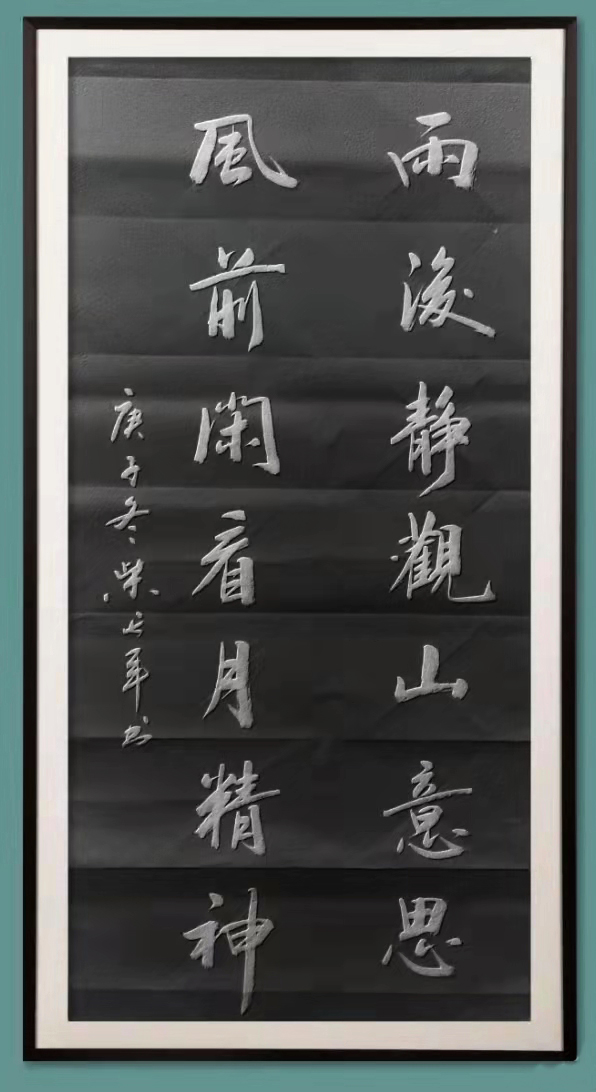 雨後靜觀山意思
風前閑看月精神
庚子冬柴长军书